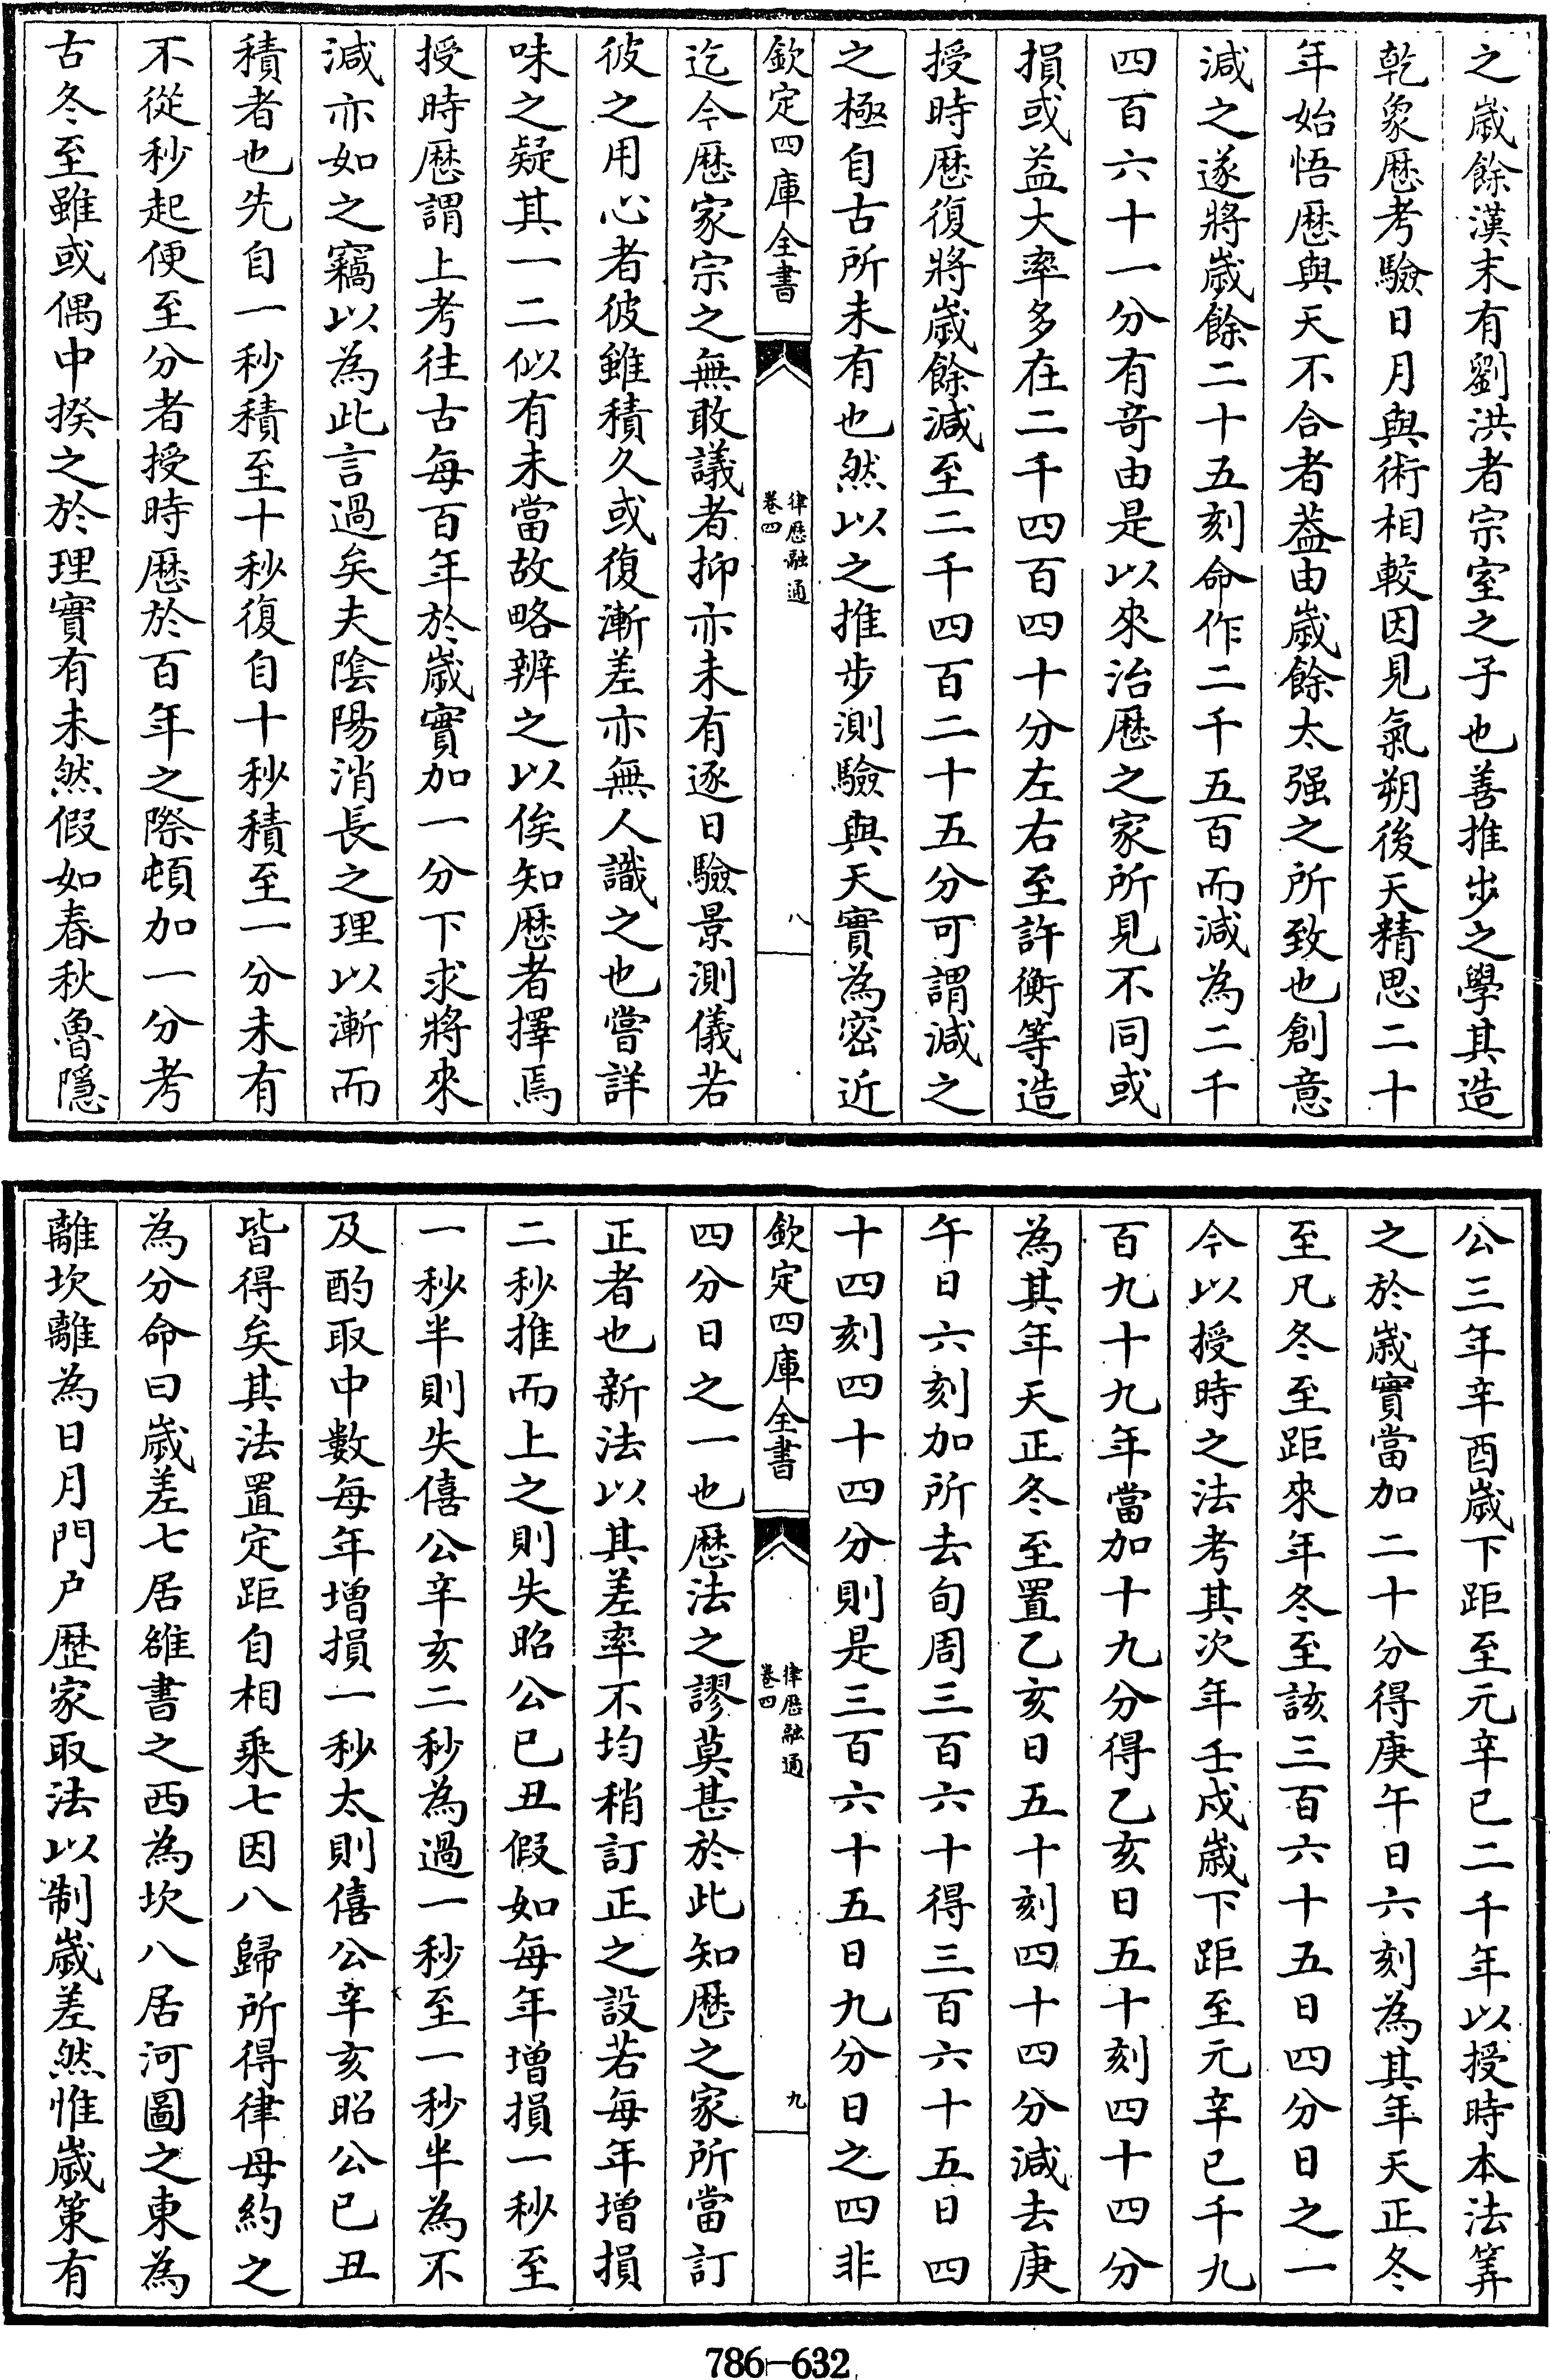 之歳餘漢末有劉洪者宗室之子也善推步之學其造
乾象厯考驗日月與術相較因見氣朔後天精思二十
年始悟厯與天不合者葢由歳餘太强之所致也創意
減之遂將歳餘二十五刻命作二千五百而減為二千
四百六十一分有竒由是以來治厯之家所見不同或
損或益大率多在二千四百四十分左右至許衡等造
授時厯復將歳餘減至二千四百二十五分可謂減之
之極自古所未有也然以之推步測驗與天實為密近
欽定四庫全書
律厯融通
卷四
八
迄今厯家宗之無敢議者抑亦未有逐日驗景測儀若
彼之用心者彼雖積久或復漸差亦無人識之也嘗詳
味之疑其一二似有未當故略辨之以俟知厯者擇焉
授時厯謂上考往古每百年於歳實加一分下求將來
減亦如之竊以為此言過矣夫陰陽消長之理以漸而
積者也先自一秒積至十秒復自十秒積至一分未有
不從秒起便至分者授時厯於百年之際頓加一分考
古冬至雖或偶中揆之於理實有未然假如春秋魯隱
公三年辛酉歳下距至元辛巳二千年以授時本法筭
之於歳實當加二十分得庚午日六刻為其年天正冬
至凡冬至距來年冬至該三百六十五日四分日之一
今以授時之法考其次年壬戌歳下距至元辛巳千九
百九十九年當加十九分得乙亥日五十刻四十四分
為其年天正冬至置乙亥日五十刻四十四分減去庚
午日六刻加所去旬周三百六十得三百六十五日四
十四刻四十四分則是三百六十五日九分日之四非
欽定四庫全書
律厯融通
卷四
九
四分日之一也厯法之謬莫甚於此知厯之家所當訂
正者也新法以其差率不均稍訂正之設若每年增損
二秒推而上之則失昭公已丑假如每年增損一秒至
一秒半則失僖公辛亥二秒為過一秒至一秒半為不
及酌取中數每年增損一秒太則僖公辛亥昭公已丑
皆得矣其法置定距自相乘七因八歸所得律母約之
為分命曰歳差七居雒書之西為坎八居河圖之東為
離坎離為日月門户歴家取法以制歳差然惟歳策有
786-632